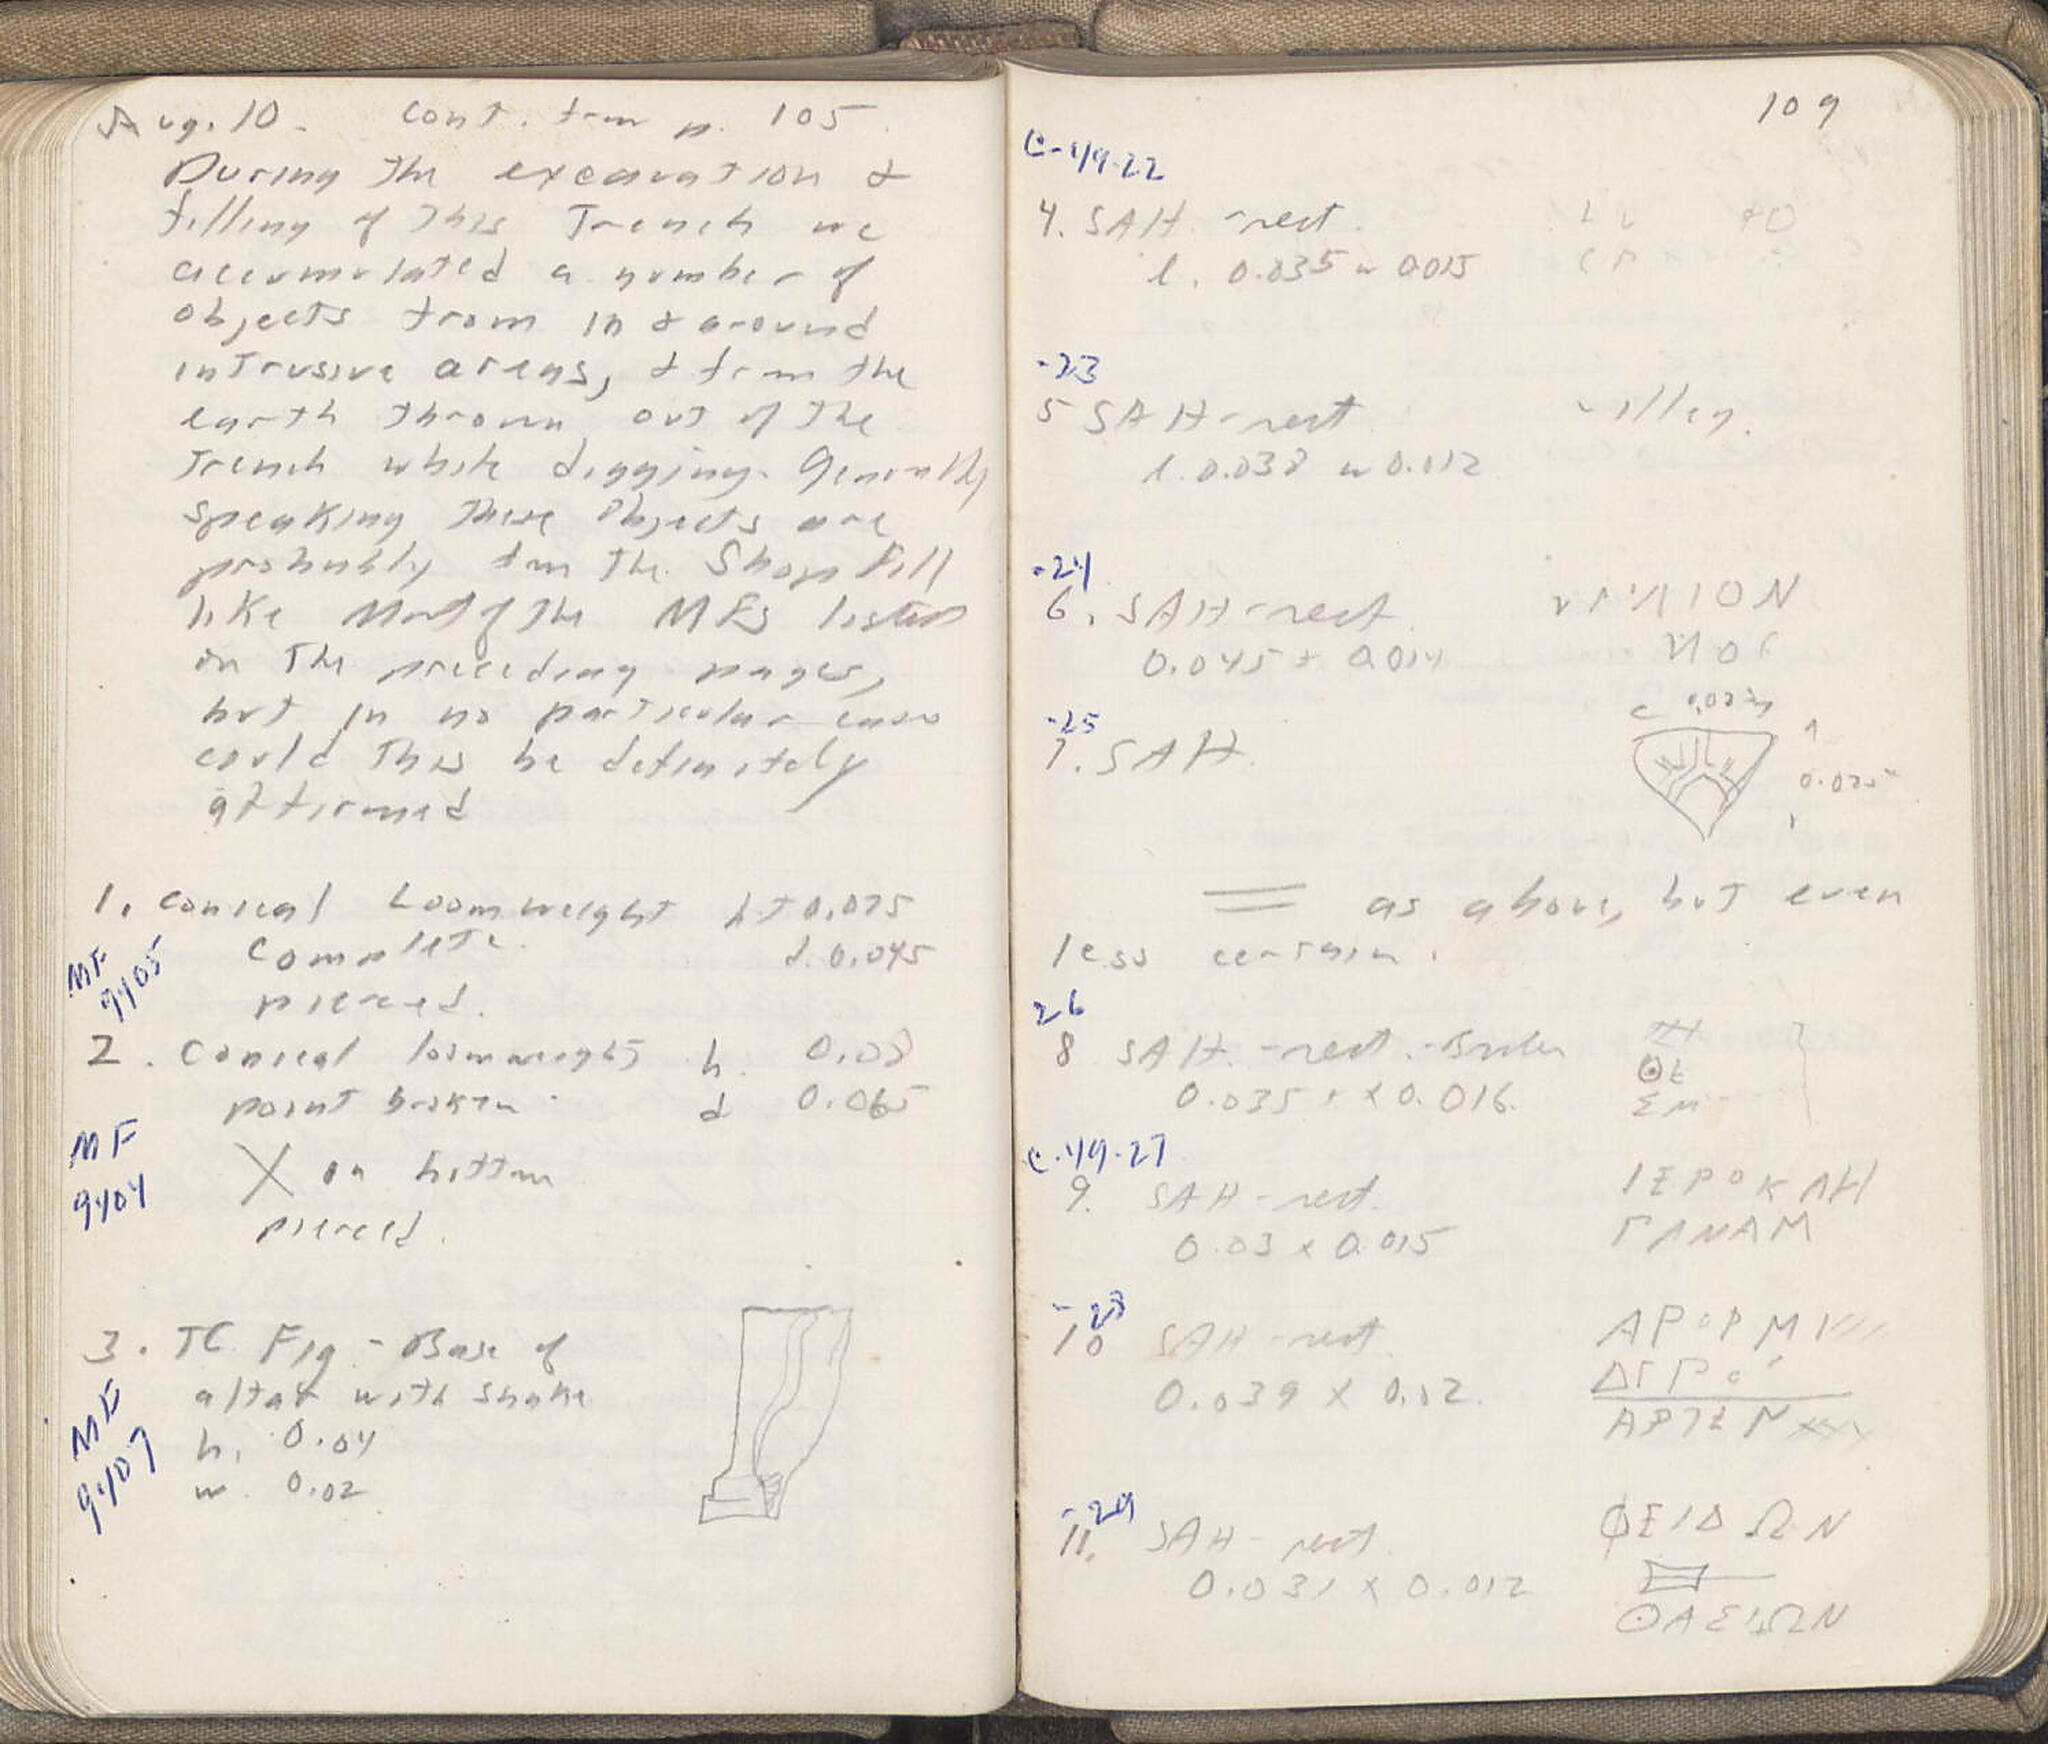 Aug. 10. Cont. from p. 105
During the excavation &
filling of this Trench we
accumulated a number of
objects from in & around
intrusive areas, & from the
earth thrown out of the
Trench while digging. Generally
speaking these objects are
probably from the Shop Fill
like Most of the MFs listed
on the preceding pages,
but in no particular case
could this be definitely
affirmed
1. Conical Loomweight ht 0.075
Complete. d. 0.045
pierced.
MF
9405
2. Conical loomweight h. 0.08
point broken. d 0.065
MF
9404
X on bottom
pierced.
3. TC Fig. - Base of
altar with snake
h. 0.04
w. 0.02
MF
9407
109
C-49-22
4. SAH - rest.
l. 0.035 w 0.015
-23
5 SAH - rest.
l. 0.038 w 0.012
-24
6. SAH - rest.
0.045 + 0.014
-25
7. SAH.
0.025
as above, but even
less certain.
26
8 SAH. - rest. - Broken
0.035 + x 0.016.
ΘΕ
ΣΜ
C-49-27
9. SAH - rest. ΙΕΡΟΚΛΗ
0.03 x 0.015 ΓΛΝΑΜ
-28
10 SAH - rest.
0.039 x 0.02.
-29
11. SAH - rest. ΦΕΙΔΩΝ
0.031 x 0.012
ΘΑΣΙΩΝ